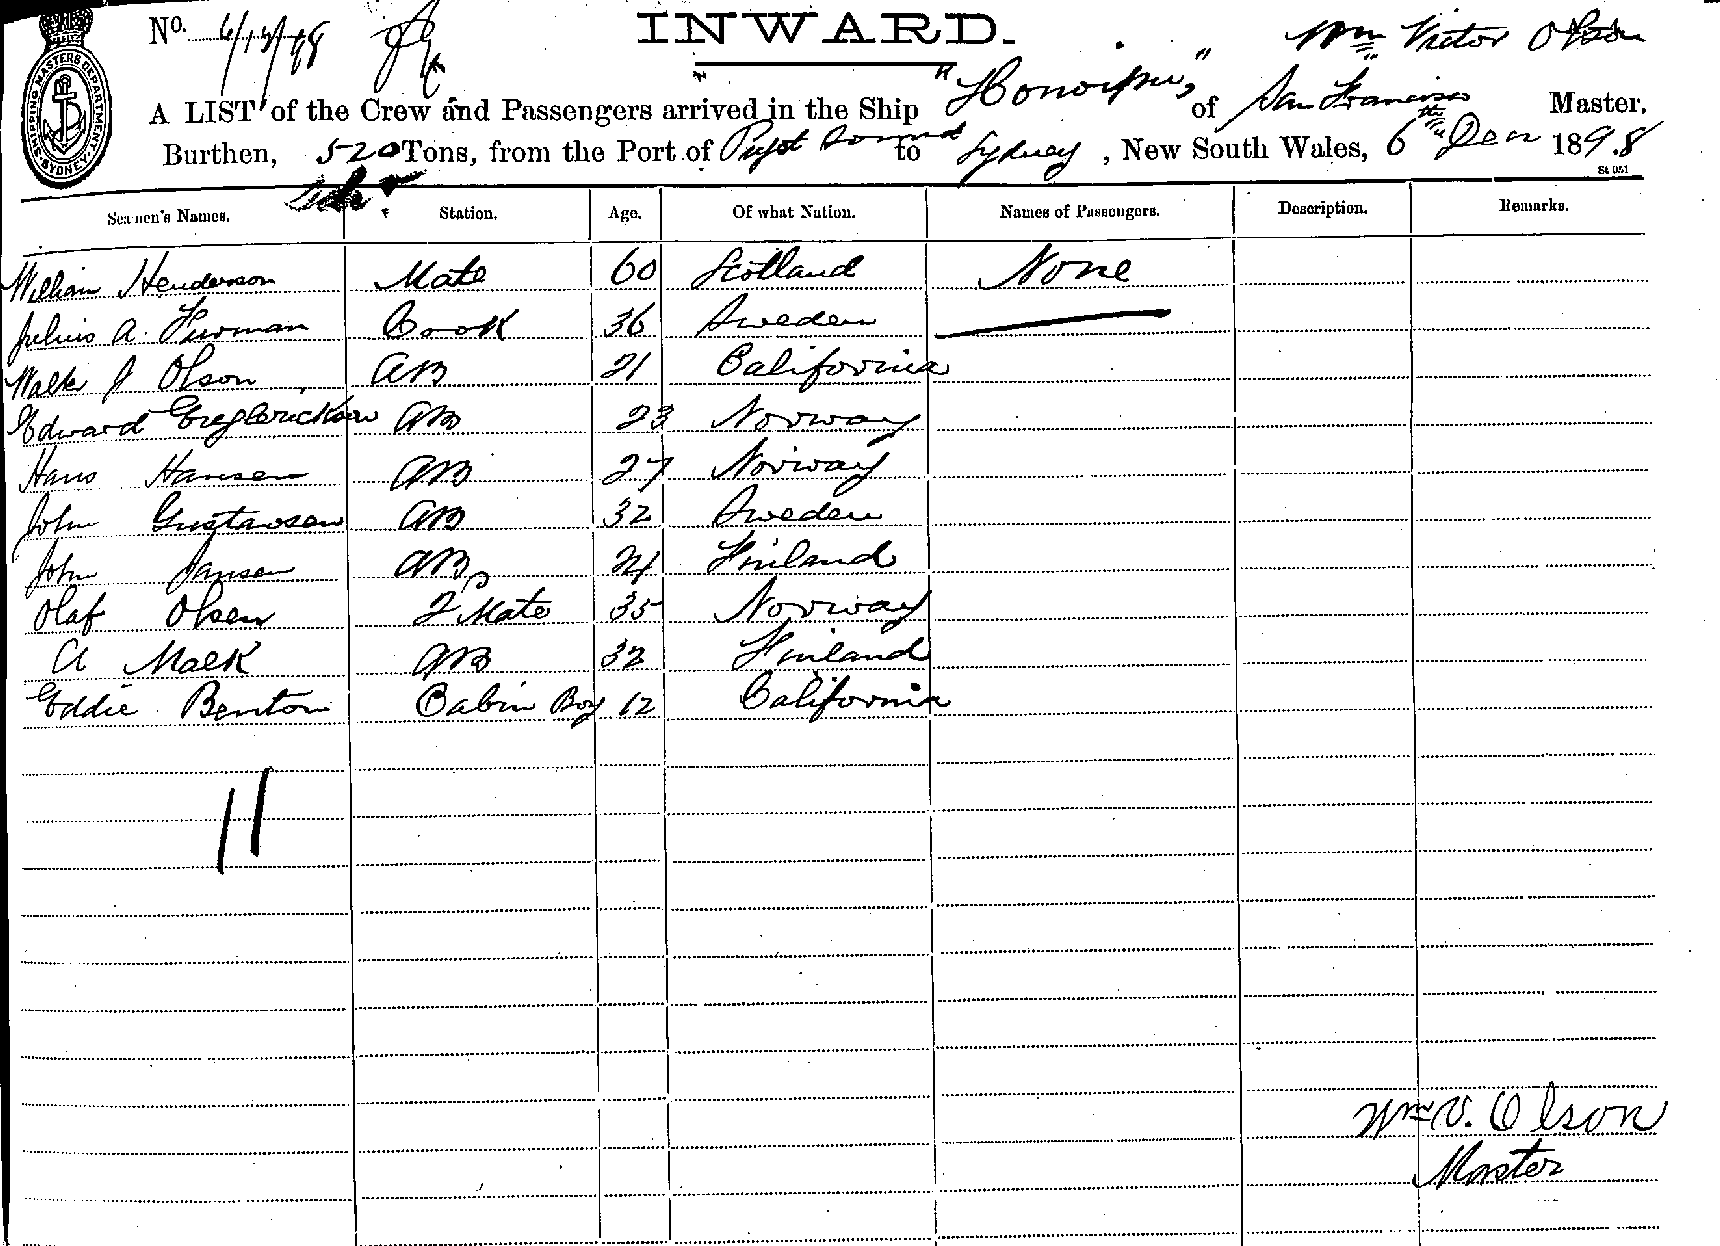 No. 6/12/98 INWARD. Wm Victor Olson
A LIST of the Crew and Passengers arrived in the Ship "Honoipu" of San Francisco Master,
Burthen, 520 Tons, from the Port of Puget Sound to Sydney, New South Wales, 6th Dec 1898
SHIPPING MASTERS DEPARTMENT SYDNEY
Seamen's Names. Station. Age. Of what Nation. Names of Passengers. Description. Remarks.
William Henderson Mate 60 Scotland None
Julius A. Furman Cook 36 Sweden
Walter J Olson AB 21 California
Edward AB 23 Norway
Hans Hansen AB 27 Norway
John Gustavsen AB 32 Sweden
John Jansen AB 24 Finland
Olaf Olsen 2 Mate 35 Norway
A Malk AB 32 Finland
Eddie Benton Cabin Boy 12 California
11
Wm V. Olson
Master